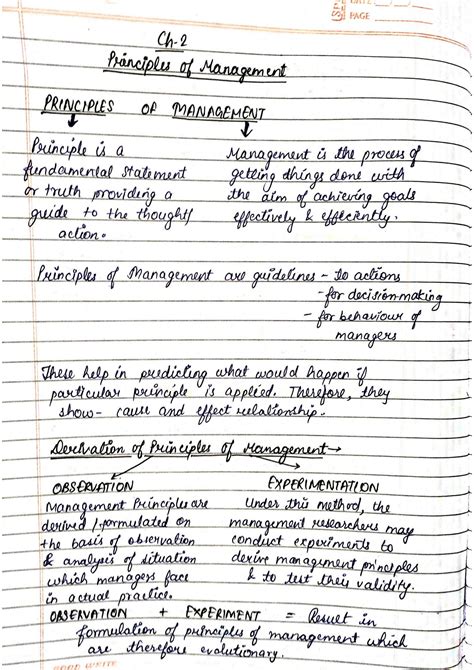 DATE
PAGE
Ch-2
Principles of Management
PRINCIPLES OF MANAGEMENT
Principle is a
fundamental statement
or truth providing a
guide to the thought/
action.
Management is the process of
getting things done with
the aim of achieving goals
effectively & efficiently.
Principles of Management are guidelines - to actions
- for decision-making
- for behaviour of
managers
These help in predicting what would happen if
particular principle is applied. Therefore, they
show- cause and effect relationship.
Derivation of Principles of Management →
OBSERVATION
Management Principles are
derived / formulated on
the basis of observation
& analysis of situation
which managers face
in actual practice.
EXPERIMENTATION
Under this method, the
management researchers may
conduct experiments to
derive management principles
& to test their validity.
OBSERVATION + EXPERIMENT = Result in
formulation of principles of management which
are therefore evolutionary.
GOOD WRITE